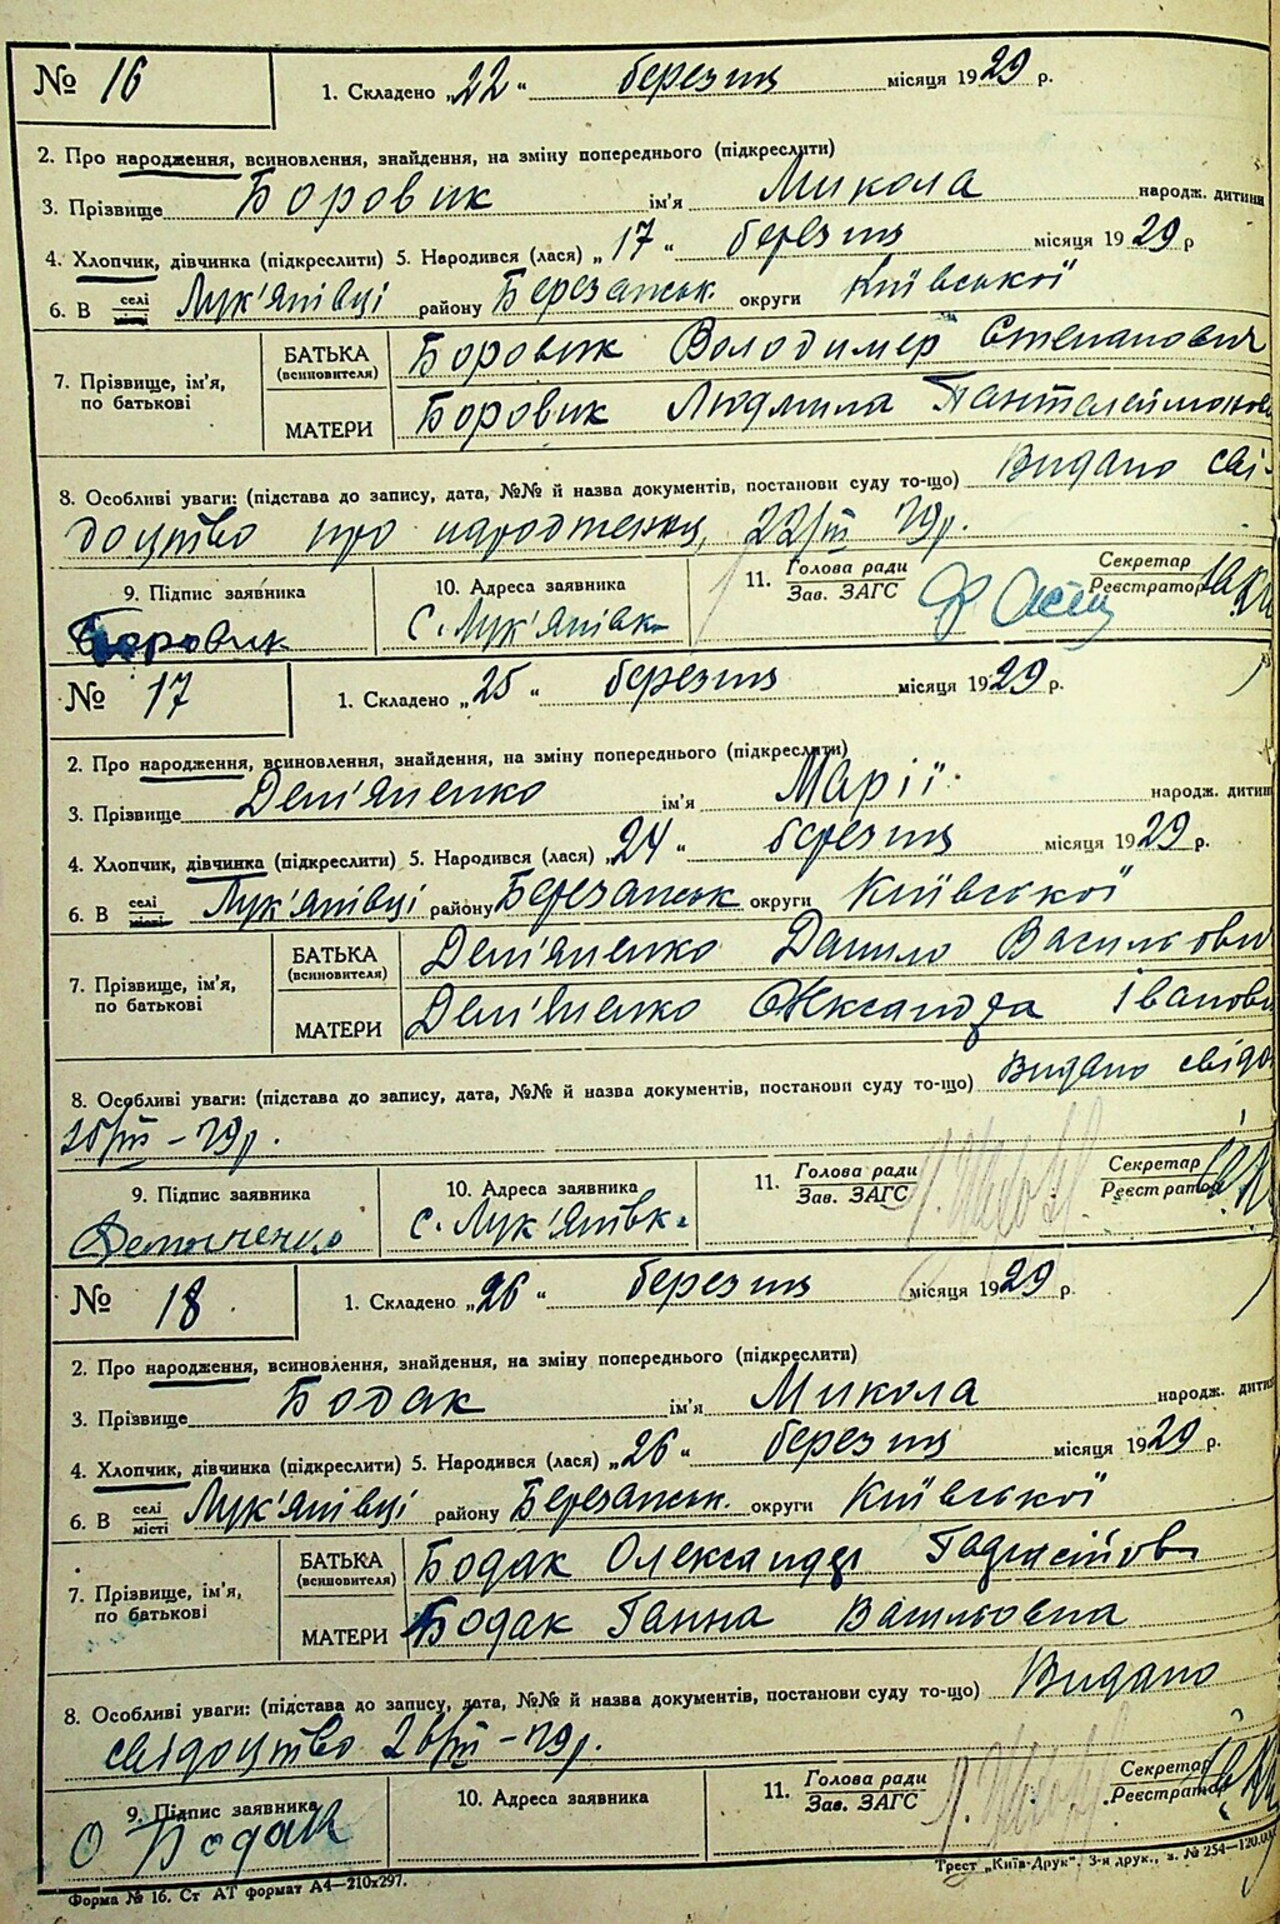 № 16
1. Складено „22“ березня місяця 1929 р.
2. Про народження, всиновлення, знайдення, на зміну попереднього (підкреслити)
3. Прізвище Боровик ім'я Микола народж. дитини
4. Хлопчик, дівчинка (підкреслити) 5. Народився (лася) „17“ березня місяця 1929 р
6. В селі місті Лук'янівці району Березанськ. округи Київської
7. Прізвище, ім'я, по батькові
БАТЬКА (всиновителя) Боровик Володимер Степанович
МАТЕРИ Боровик Людмила Пантелеймонов
8. Особливі уваги: (підстава до запису, дата, №№ й назва документів, постанови суду то-що) Видано сві-
доцтво про народження, 22/III 29р.
9. Підпис заявника
Боровик
10. Адреса заявника
с. Лук'янівка
11. Голова ради
Зав. ЗАГС
Секретар
Реєстратор
№ 17
1. Складено „25“ березня місяця 1929 р.
2. Про народження, всиновлення, знайдення, на зміну попереднього (підкреслити)
3. Прізвище Дем'яненко ім'я Марії народж. дитин
4. Хлопчик, дівчинка (підкреслити) 5. Народився (лася) „24“ березня місяця 1929 р.
6. В селі місті Лук'янівці району Березанськ округи Київської
7. Прізвище, ім'я, по батькові
БАТЬКА (всиновителя) Дем'яненко Данило Васильови
МАТЕРИ Дем'яненко Олександра Іванов
8. Особливі уваги: (підстава до запису, дата, №№ й назва документів, постанови суду то-що) Видано свідо
25/III – 29р.
9. Підпис заявника
Демяненко
10. Адреса заявника
с. Лук'янівка
11. Голова ради
Зав. ЗАГС
Секретар
Реєстратор
№ 18
1. Складено „26“ березня місяця 1929 р.
2. Про народження, всиновлення, знайдення, на зміну попереднього (підкреслити)
3. Прізвище Бодак ім'я Микола народж. дити
4. Хлопчик, дівчинка (підкреслити) 5. Народився (лася) „26“ березня місяця 1929 р.
6. В селі місті Лук'янівці району Березанськ. округи Київської
7. Прізвище, ім'я, по батькові
БАТЬКА (всиновителя) Бодак Олександр
МАТЕРИ Бодак Ганна Васильовна
8. Особливі уваги: (підстава до запису, дата, №№ й назва документів, постанови суду то-що) Видано
свідоцтво 26/III – 29р.
9. Підпис заявника
О Бодак
10. Адреса заявника
11. Голова ради
Зав. ЗАГС
Секретар
Реєстратор
Форма № 16. Ст АТ формат А4—210х297.
Трест „Київ-Друк“. 3-я друк., з. № 254—120.0